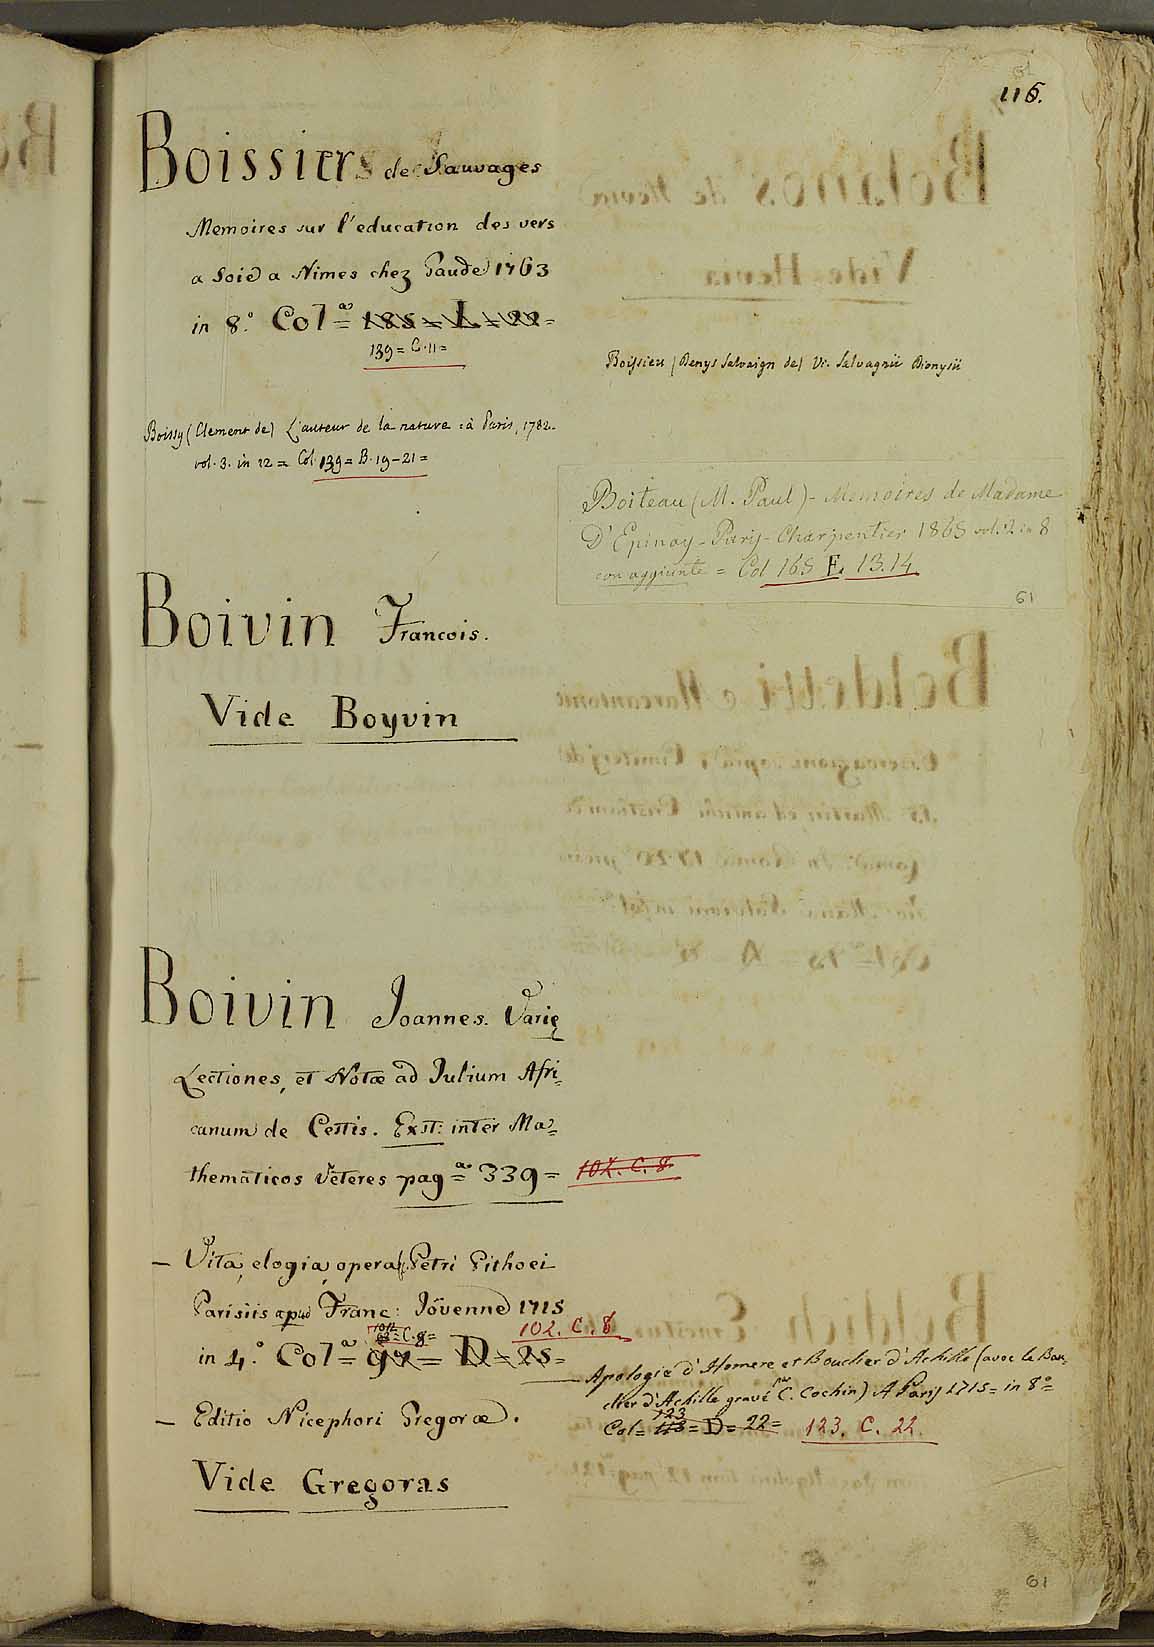 116.
Boissier de Sauvages
Memoires sur l'education des vers
a Soie a Nimes chez Gaude 1763
in 8.° Col.ª = 185 = L = 22 =
139 = C. 11 =
Boissy (Clement de) L'auteur de la nature : à Paris, 1782.
vol. 3. in 12 = Col. 139 = B. 19-21 =
Boivin Francois.
Vide Boyvin
Boivin Joannes. Varię
Lectiones, et Notæ ad Julium Afri=
canum de Cestis. Exst: inter Ma=
thematicos Veteres pag.ª = 339 = 102. C. 8
— Vita, elogia, opera Petri Pithoei
Parisiis apud Franc: Jovenne 1715
102. C. 8
in 4.° Col.ª = 97 = D = 25 =
— Editio Nicephori Gregoræ.
Vide Gregoras
Boissieu (Denys Salvaign de) Vi. Salvagnii Dionysii
Boiteau (M. Paul) - Memoires de Madame
D'Epinay - Paris - Charpentier 1865 vol. 2 in 8
con aggiunte = Col 165 E. 13.14
61
— Apologie d'Homere et Bouclier d'Achille (avec le Bou=
clier d'Achille gravé par C. Cochin) A Paris 1715 = in 8° =
123
Col = 113 = D = 22 = 123. C. 22.
61